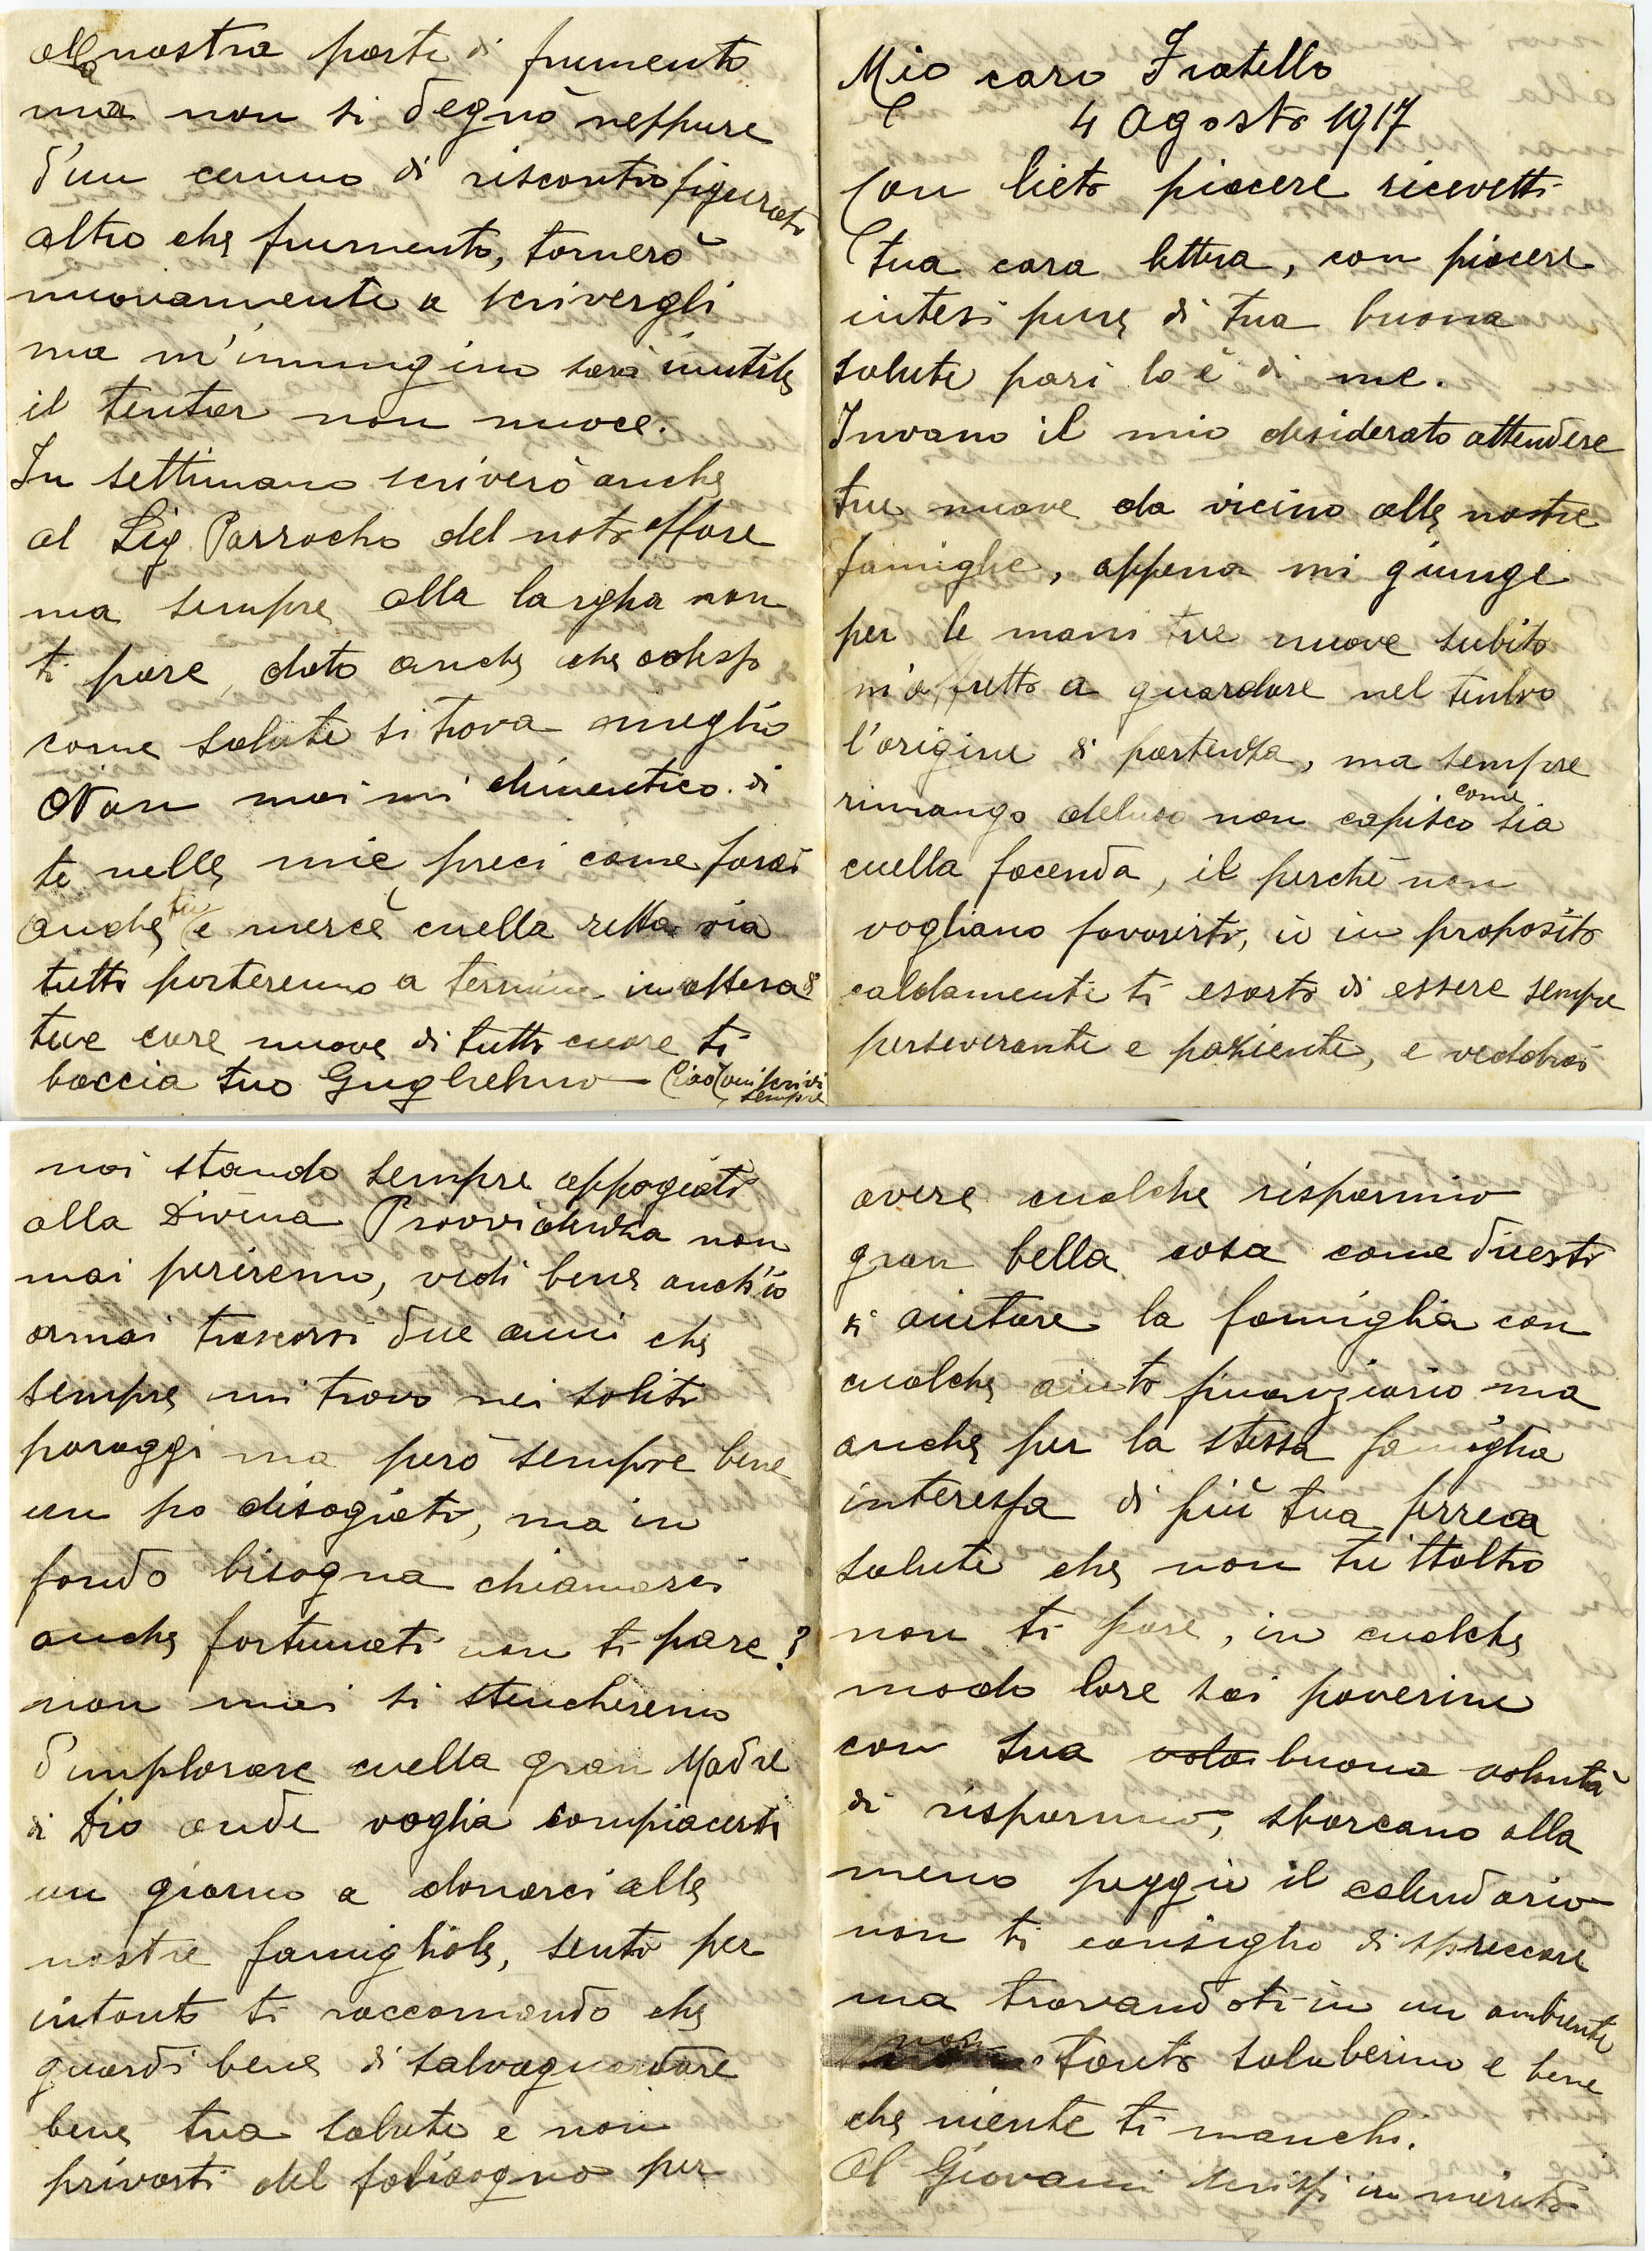 Mio caro Fratello
4 Agosto 1917
Con lieto piacere ricevetti
tua cara lettera, con piacere
intesi pure di tua buona
salute pari lo è di me.
Invano il mio desiderato attendere
tue nuove da vicino alle nostre
famiglie, appena mi giunge
per le mani tue nuove subito
m'affretto a guardare nel timbro
l'origine di partenza, ma sempre
rimango deluso non capisco come sia
cuella facenda, il perchè non
vogliano favorirti, io in proposito
caldamente ti esorto di essere sempre
perseverante e paziente, e veddrai
noi stando sempre appogiati
alla Divina Provvidenza non
mai periremo, vedi bene anch'io
ormai trascorsi due anni che
sempre mi trovo nei soliti
paraggi ma però sempre bene
un po disagiati, ma in
fondo bisogna chiamarci
anche fortunati non ti pare?
non mai si stancheremo
d'implorare cuella gran Madre
di Dio onde voglia compiacersi
un giorno a donarci alle
nostre famigliole, senti per
intanto ti raccomando che
guardi bene di salvaguardare
bene tua salute e non
privarti del fabisogno per
avere cualche risparmio
gran bella cosa come diresti
di aiutare la famiglia con
cualche aiuto finanziario ma
anche per la stessa famiglia
interessa di più tua
salute che non tutt'altro
non ti pare, in cualche
modo lore sai poverine
con sua vola buona volontà
di risparmio, sbarcano alla
meno peggio il calendario
non ti consiglio di spreccare
ma trovandoti in un ambiente
non tanto saluberimo e bene
che niente ti manchi.
Al Giovanni scrissi in merito
alla nostra parte di frumento
ma non si degnò neppure
d'un cenno di riscontro figurati
altro che frumento, tornerò
nuovamente a scrivergli
ma m'immagino sarà inutile
il tentar non nuoce.
In settimana scriverò anche
al Sig. Parrocho del noto affare
ma sempre alla largha non
ti pare, dato anche che adesso
come salute si trova meglio
Non mai mi dimentico di
te nelle mie preci come farai
anche tu e mercè cuella retta via
tutto porteremo a termine in attesa di
tue care nuove di tutto cuore ti
baccia tuo Guglielmo – Ciao scrivi
sempre